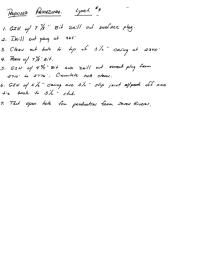 PROPOSED PROCEDURE. Lynch #
1. GIH w/ 7 7/8" Bit drill out surface plug.
2. Drill out plug at
3. Clean out hole to top of 5 1/2" casing at
4. POOH w/ 7 7/8" Bit.
5. GIH w/ 4 3/4" Bit and drill out cement plug from
to Circulate hole clean.
6. GIH w/ 5 1/2" casing and 5 1/2" slip joint
tie back to 5 1/2" stub.
7. Test open hole for production from Seven Rivers.